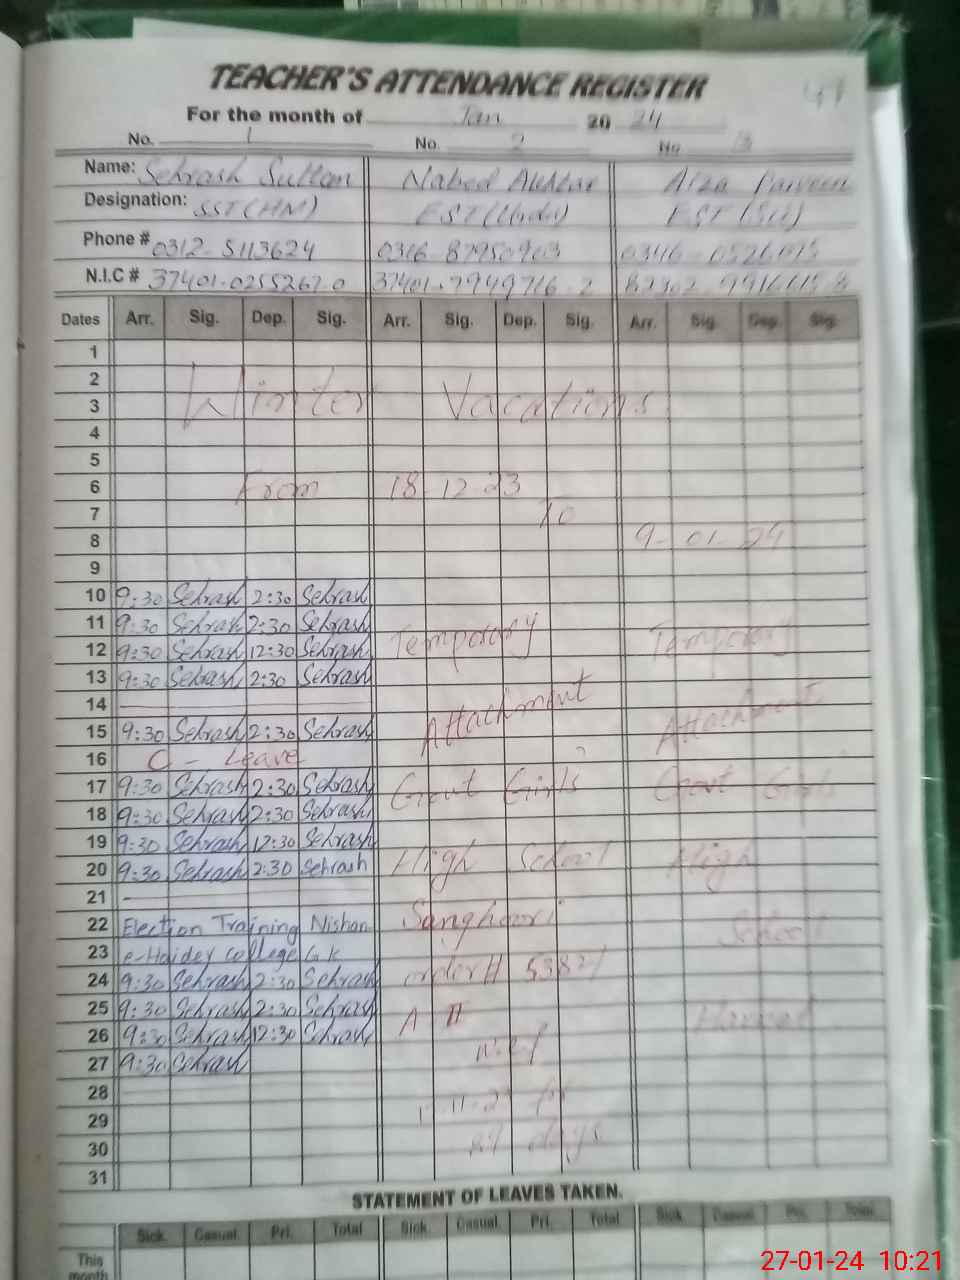 TEACHER'S ATTENDANCE REGISTER
For the month of Jan 20 24
No. 1 No. 2 No 3
Name: Sehrash Sultan Nabed Akhtar Aiza Parveen
Designation: SST (HM) EST (Urdu) EST (Sci)
Phone # 0312-5113624
N.I.C # 37401-0255267-0 37401-7949716-2
Dates Arr. Sig. Dep. Sig. Arr. Sig. Dep. Sig. Arr. Sig. Dep. Sig.
1
2
3 Winter Vacations
4
5
6 From 18-12-23
7 To
8 9-01-24
9
10 9:30 Sehrash 2:30 Sehrash
11 9:30 Sehrash 2:30 Sehrash
12 9:30 Sehrash 12:30 Sehrash Temporary Temporary
13 9:30 Sehrash 2:30 Sehrash
14
15 9:30 Sehrash 2:30 Sehrash Attachment Attachment
16 C - Leave
17 9:30 Sehrash 2:30 Sehrash Govt Girls Govt Girls
18 9:30 Sehrash 2:30 Sehrash
19 9:30 Sehrash 12:30 Sehrash
20 9:30 Sehrash 2:30 Sehrash High School High
21
22 Election Training Nishan Sanghoori School
23 e-Haider College G.K
24 9:30 Sehrash 2:30 Sehrash order #
25 9:30 Sehrash 2:30 Sehrash
26 9:30 Sehrash 12:30 Sehrash A II
27 9:30 Sehrash w.e.f
28
29 for
30 days
31
STATEMENT OF LEAVES TAKEN.
Sick Casual Pri. Total Sick. Casual. Pri. Total Sick Casual Pri. Total
This month
27-01-24 10:21